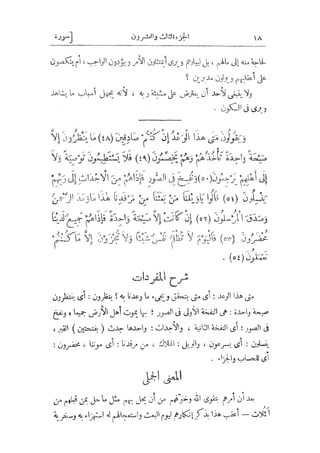 ١٨ الجزء الثالث والعشرون [سورة
لحاجة منه إلى مالهم ، بل ليبلوهم ويرى أيمتثلون الأمر ويؤدون الواجب ، أم ينكصون
على أعقابهم ويولون مدبرين ؟
ولا ينبغى لأحد أن يعترض على مشيئة ربه ، لأنه يجهل أسباب ما يشاهد
ويرى فى السكون .
وَيَقُولُونَ مَتَى هٰذَا الْوَعْدُ إِنْ كُنْتُمْ صَادِقِينَ (٤٨) مَا يَنْظُرُونَ إِلَّا
صَيْحَةً وَاحِدَةً تَأْخُذُهُمْ وَهُمْ يَخِصِّمُونَ (٤٩) فَلَا يَسْتَطِيعُونَ تَوْصِيَةً وَلَا
إِلَى أَهْلِهِمْ يَرْجِعُونَ (٥٠) وَنُفِخَ فِى الصُّورِ فَإِذَا هُمْ مِنَ الْأَجْدَاثِ إِلَى رَبِّهِمْ
يَنْسِلُونَ (٥١) قَالُوا يَا وَيْلَنَا مَنْ بَعَثَنَا مِنْ مَرْقَدِنَا هٰذَا مَا وَعَدَ الرَّحْمٰنُ
وَصَدَقَ الْمُرْسَلُونَ (٥٢) إِنْ كَانَتْ إِلَّا صَيْحَةً وَاحِدَةً فَإِذَا هُمْ جَمِيعٌ لَدَيْنَا
مُحْضَرُونَ (٥٣) فَالْيَوْمَ لَا تُظْلَمُ نَفْسٌ شَيْئًا وَلَا تُجْزَوْنَ إِلَّا مَا كُنْتُمْ
تَعْمَلُونَ (٥٤) .
شرح المفردات
متى هذا الوعد : أى متى يتحقق ويجىء ما وعدنا به ؟ ينظرون : أى ينتظرون
صيحة واحدة : هى النفخة الأولى فى الصور ؛ بها يموت أهل الأرض جميعا ، ونفخ
فى الصور : أى النفخة الثانية ، والأجداث : واحدها جدث ( بفتحتين ) القبر ،
ينسلون : أى يسرعون ، والويل : الهلاك ، من مرقدنا : أى موتنا ، محضرون :
أى للحساب والجزاء .
المعنى الجملى
بعد أن أمرهم بتقوى الله وخوفهم من أن يحل بهم مثل ما حل بمن قبلهم من
المثلات — أعقب هذا بذكر إنكارهم ليوم البعث واستعجالهم له استهزاء به وسخرية